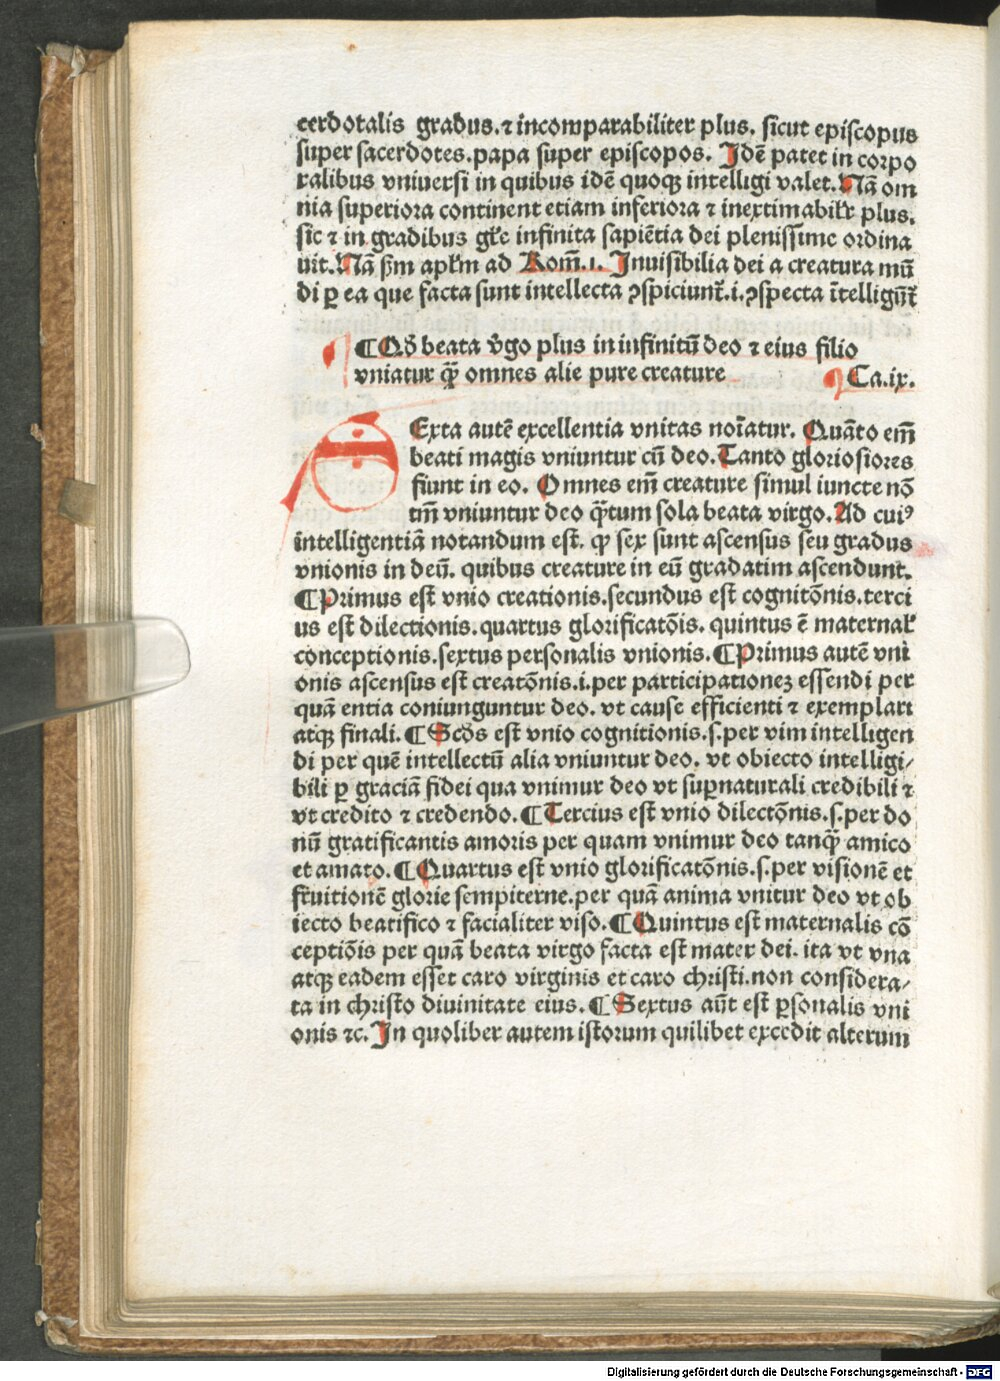 cerdotalis gradus. ⁊ incomparabiliter plus. sicut episcopus
super sacerdotes. papa super episcopos. Idē patet in corpo
ralibus vniuersi in quibus idē quoqꝫ intelligi valet. Nā om
nia superiora continent etiam inferiora ⁊ inextimabilr̄ plus.
sic ⁊ in gradibus gr̄e infinita sapiētia dei plenissime ordina
uit. Nā ſm̄ aplm̄ ad Rom̄.i. Inuisibilia dei a creatura mū
di ꝑ ea que facta sunt intellecta ꝯspiciunt̄.i.ꝯspecta ītelligūt̄
¶ Qd̄ beata v̄go plus in infinitū deo ⁊ eius filio
vniatur qͣ̄ omnes alie pure creature
¶ Ca.ix.
SExta autē excellentia vnitas noīatur. Quāto em̄
beati magis vniuntur cū deo. Tanto gloriosiores
fiunt in eo. Omnes em̄ creature simul iuncte nō
tm̄ vniuntur deo qͣ̄tum sola beata virgo. Ad cuiꝰ
intelligentiā notandum est. ꝙ sex sunt ascensus seu gradus
vnionis in deū. quibus creature in eū gradatim ascendunt.
¶ Primus est vnio creationis. secundus est cognitōnis. terci
us est dilectionis. quartus glorificatōis. quintus ē maternal̄
conceptionis. sextus personalis vnionis. ¶ Primus autē vni
onis ascensus est creatōnis.i.per participationeꝫ essendi per
quā entia coniunguntur deo. vt cause efficienti ⁊ exemplari
atqꝫ finali. ¶ Scd̄s est vnio cognitionis.s.per vim intelligen
di per quē intellectū alia vniuntur deo. vt obiecto intelligi/
bili ꝑ graciā fidei qua vnimur deo vt suꝑnaturali credibili ⁊
vt credito ⁊ credendo. ¶ Tercius est vnio dilectōnis.s.per do
nū gratificantis amoris per quam vnimur deo tanqͣ̄ amico
et amato. ¶ Quartus est vnio glorificatōnis.s.per visionē et
fruitionē glorie sempiterne. per quā anima vnitur deo vt ob
iecto beatifico ⁊ facialiter viso. ¶ Quintus est maternalis cō
ceptiōis per quā beata virgo facta est mater dei. ita vt vna
atqꝫ eadem esset caro virginis et caro christi. non considera/
ta in christo diuinitate eius. ¶ Sextus aūt est ꝑsonalis vni
onis ⁊c. In quolibet autem istorum quilibet excedit alterum
Digitalisierung gefördert durch die Deutsche Forschungsgemeinschaft - DFG